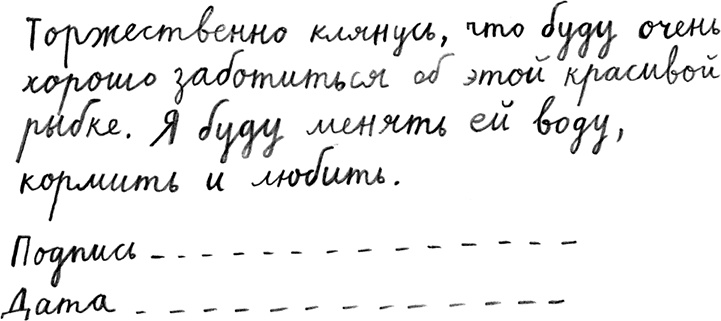 Торжественно клянусь, что буду очень
хорошо заботиться об этой красивой
рыбке. Я буду менять ей воду,
кормить и любить.
Подпись _ _ _ _ _ _ _ _ _ _ _ _ _ _
Дата _ _ _ _ _ _ _ _ _ _ _ _ _